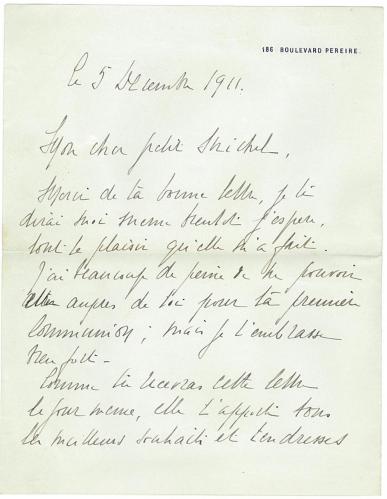 186 BOULEVARD PEREIRE.
le 5 Décembre 1911.
Mon cher petit Michel,
Merci de ta bonne lettre, je te
dirai moi même bientôt j'espère,
tout le plaisir qu'elle m'a fait.
J'ai beaucoup de peine de ne pouvoir
être auprès de toi pour ta première
Communion ; mais je t'embrasse
bien fort -
Comme tu recevras cette lettre
le jour même, elle t'apporte tous
les meilleurs souhaits et tendresses